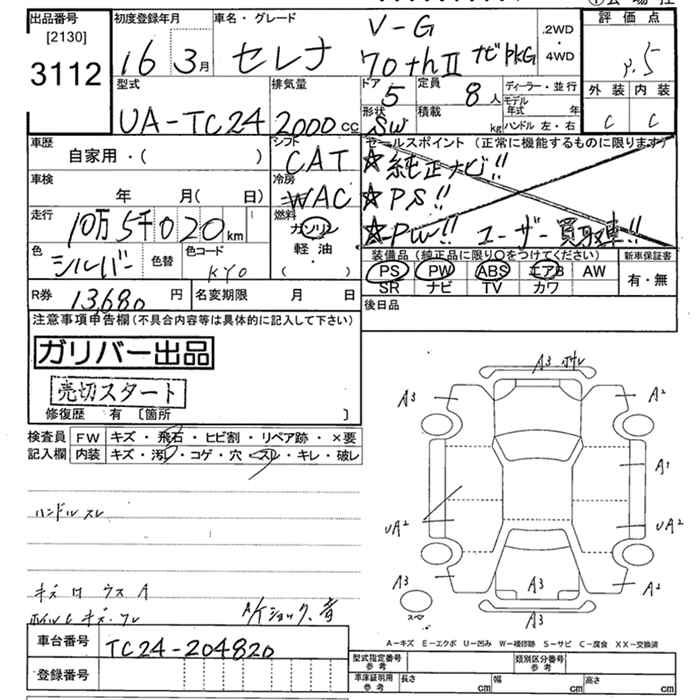 出品番号 [2130] 3112
初度登録年月 16年 3月
車名・グレード セレナ V-G 70th II ナビPKG
.2WD ・4WD
評価点
外装 内装
C C
型式 UA-TC24
排気量 2000cc
ドア 5 定員 8人
形状 SW 積載 kg
ディーラー・並行
モデル年式 年
ハンドル 左・右
車歴 自家用・( )
シフト CAT
セールスポイント (正常に機能するものに限ります)
☆純正ナビ!!
☆PS!!
☆PW!! ユーザー買取車!!
車検 年 月( 日)
冷房 WAC
走行 10万5千020km
燃料 ガソリン 軽油・( )
色 シルバー 色替 色コード KY0
装備品 (純正品に限り○をつけてください) 新車保証書
PS PW ABS エアB AW 有・無
SR ナビ TV カワ
R券 13,680円 名変期限 月 日
後日品
注意事項申告欄(不具合内容等は具体的に記入して下さい)
ガリバー出品
売切スタート
修復歴 有 〔箇所 〕
検査員 FW キズ・飛石・ヒビ割・リペア跡・×要
記入欄 内装 キズ・汚レ・コゲ・穴・スレ・キレ・破レ
ハンドルスレ
A3
A3 A2
A1
UA2 UA2
A3 A3 A2
A3
A/Tショック、音
A-キズ E-エクボ U-凹み W-補修跡 S-サビ C-腐食 XX-交換済
車台番号 TC24-204820
登録番号
型式指定番号 参考 類別区分番号 参考
車庫証明用 参考 長さ cm 幅 cm 高さ cm